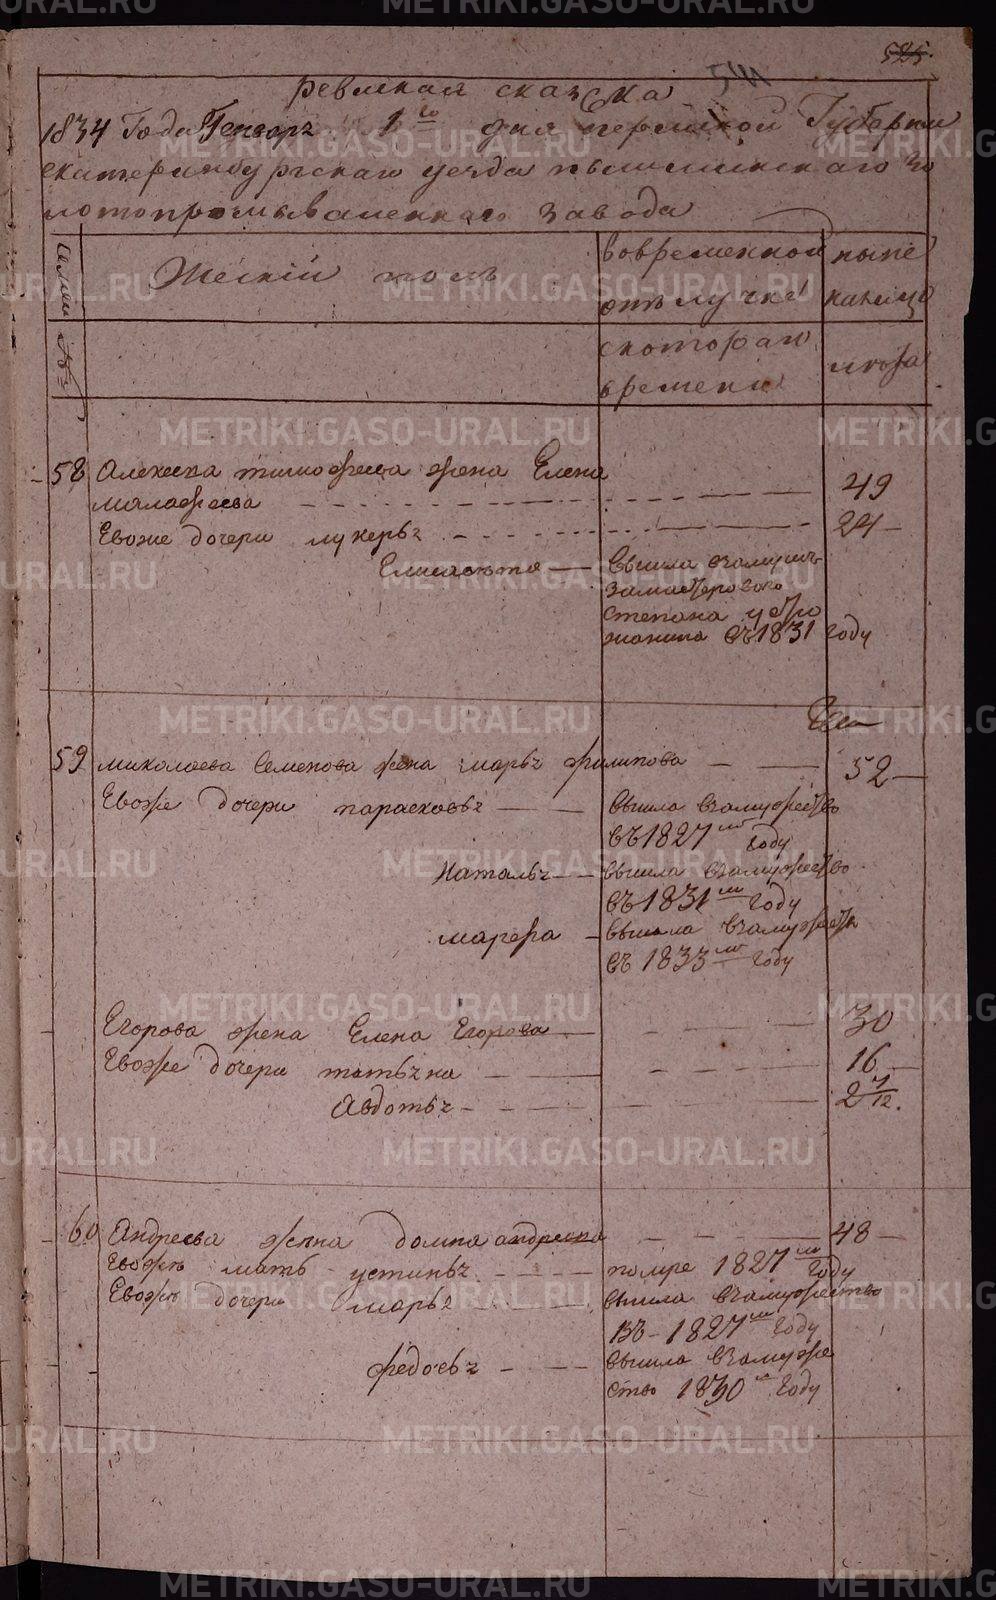 525
541
ревиская сказска
1834 Года Генваря 1го дня пермской Губернии
екатеринбургскаго уезда пышминскаго зо
лотопромываленнаго завода
семьи №
Жескiй полъ
вовременной
отълучке
ныне
налицо
скотораго
времени
лета
58 Алексея тимофеева жена Елена
малафеева 49
Евоже дочери лукерья 24
Елисавета вышла взамуж
замастероваго
степана устю
жанина въ 1831 году
59 миколаева Семенова жена марья филипова 52
Евоже дочери парасковья вышла взамужество
въ 1827м году
Наталья вышла взамужество
въ 1831м году
марфа вышла взамужеств
въ 1833м году
Егорова жена Елена Егорова 30
Евоже дочери татьяна 16
Авдотья 2 7/12.
60 Андреева жена домна андреева 48
Евожъ мать устинья помре 1827м году
Евожъ дочери марья вышла взамужество
въ 1827м году
федосья вышла взамуже
ство 1830м году
METRIKI.GASO-URAL.RU